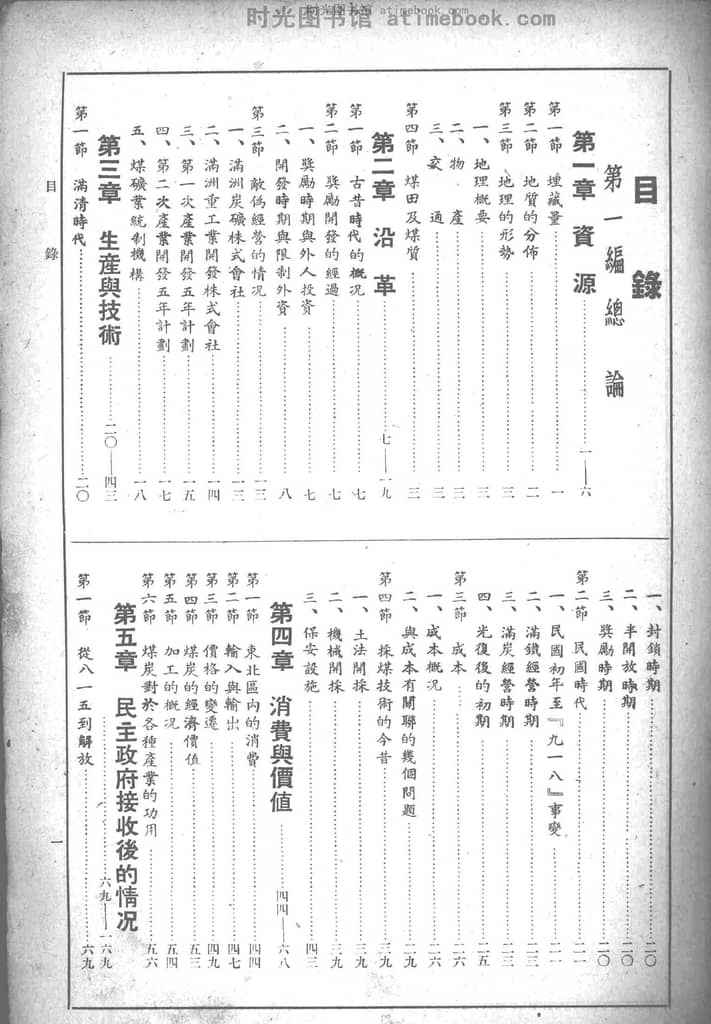 时光图书馆 atimebook.com
时光图书馆 atimebook.com
目錄
第一編 總論
第一章 資源 一——六
第一節 埋藏量 一
第二節 地質的分佈 二
第三節 地理的形勢 三
一、地理概要 三
二、物產 三
三、交通 三
第四節 煤田及煤質 三
第二章 沿革 七——一九
第一節 古昔時代的概況 七
第二節 獎勵開發的經過 七
一、獎勵時期與外人投資 七
二、開發時期與限制外資 八
第三節 敵偽經營的情況 一三
一、滿洲炭礦株式會社 一三
二、滿洲重工業開發株式會社 一四
三、第一次產業開發五年計劃 一五
四、第二次產業開發五年計劃 一七
五、煤礦業統制機構 一八
第三章 生產與技術 二〇——四三
第一節 滿清時代 二〇
一、封鎖時期 二〇
二、半開放時期 二〇
三、獎勵時期 二〇
第二節 民國時代 二一
一、民國初年至『九一八』事變 二一
二、滿鐵經營時期 二三
三、滿炭經營時期 二三
四、光復後的初期 二五
第三節 成本 二六
一、成本概況 二六
二、與成本有關聯的幾個問題 二九
第四節 採煤技術的今昔 三九
一、土法開採 三九
二、機械開採 三九
三、保安設施 四三
第四章 消費與價值 四四——六八
第一節 東北區內的消費 四四
第二節 輸入與輸出 四七
第三節 價格的變遷 四九
第四節 煤炭的經濟價值 五三
第五節 加工的概況 五四
第六節 煤炭對於各種產業的功用 五六
第五章 民主政府接收後的情況 六九——一六九
第一節 從八一五到解放 六九
目錄
一